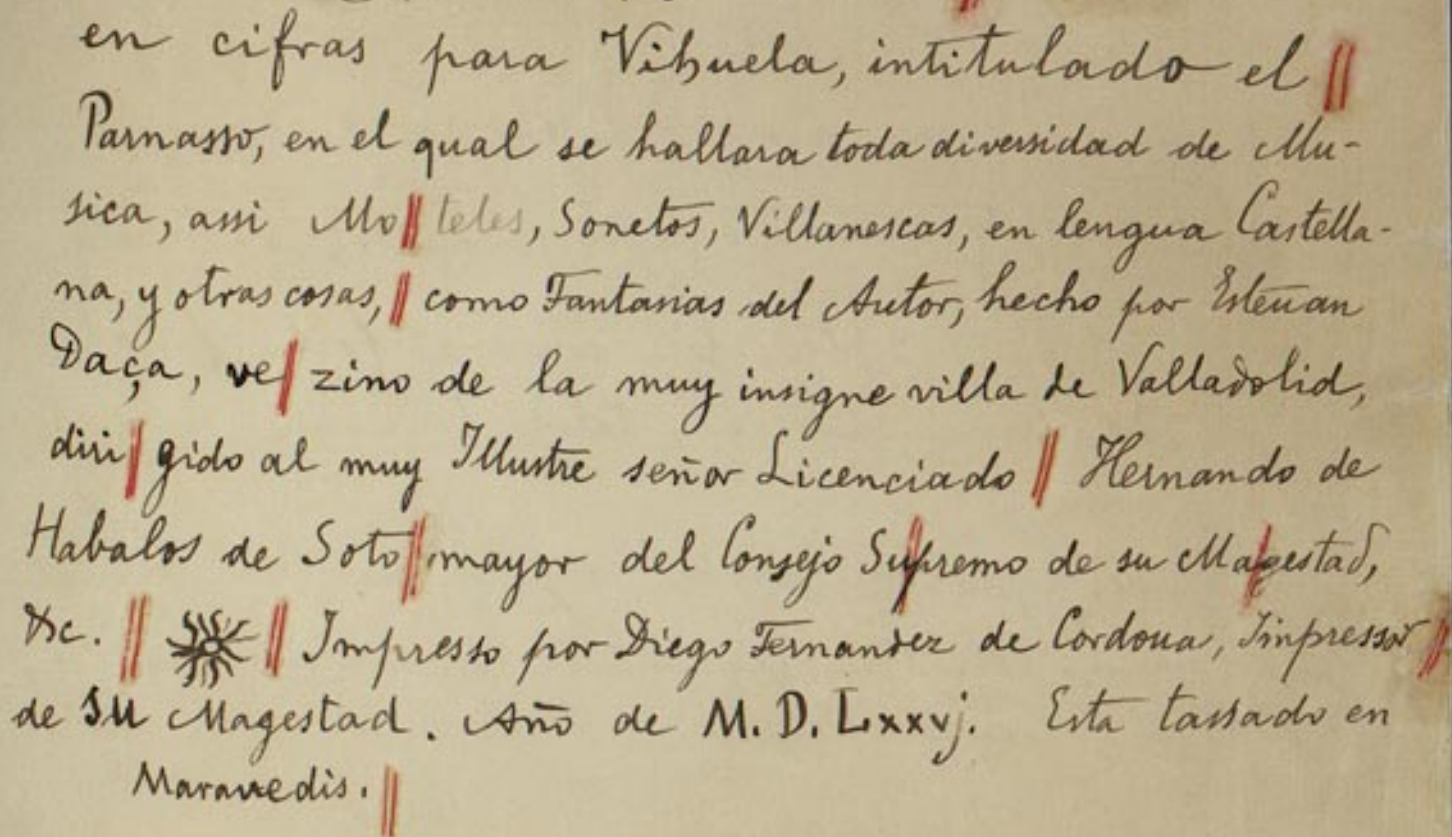 en cifras para Vihuela, intitulado el ||
Parnasso, en el qual se hallara toda diversidad de Mu-
sica, assi Mo || teles, Sonetos, Villanescas, en lengua Castella-
na, y otras cosas, || como Fantasias del Autor, hecho por Esteuan
Daça, ve | zino de la muy insigne villa de Valladolid,
diri | gido al muy Illustre señor Licenciado || Hernando de
Habalos de Soto || mayor del Consejo Supremo de su Magestad,
&c. || || Impresso por Diego Fernandez de Cordoua, Impressor ||
de su Magestad. Año de M. D. Lxxvj. Esta tassado en
Maravedis. ||